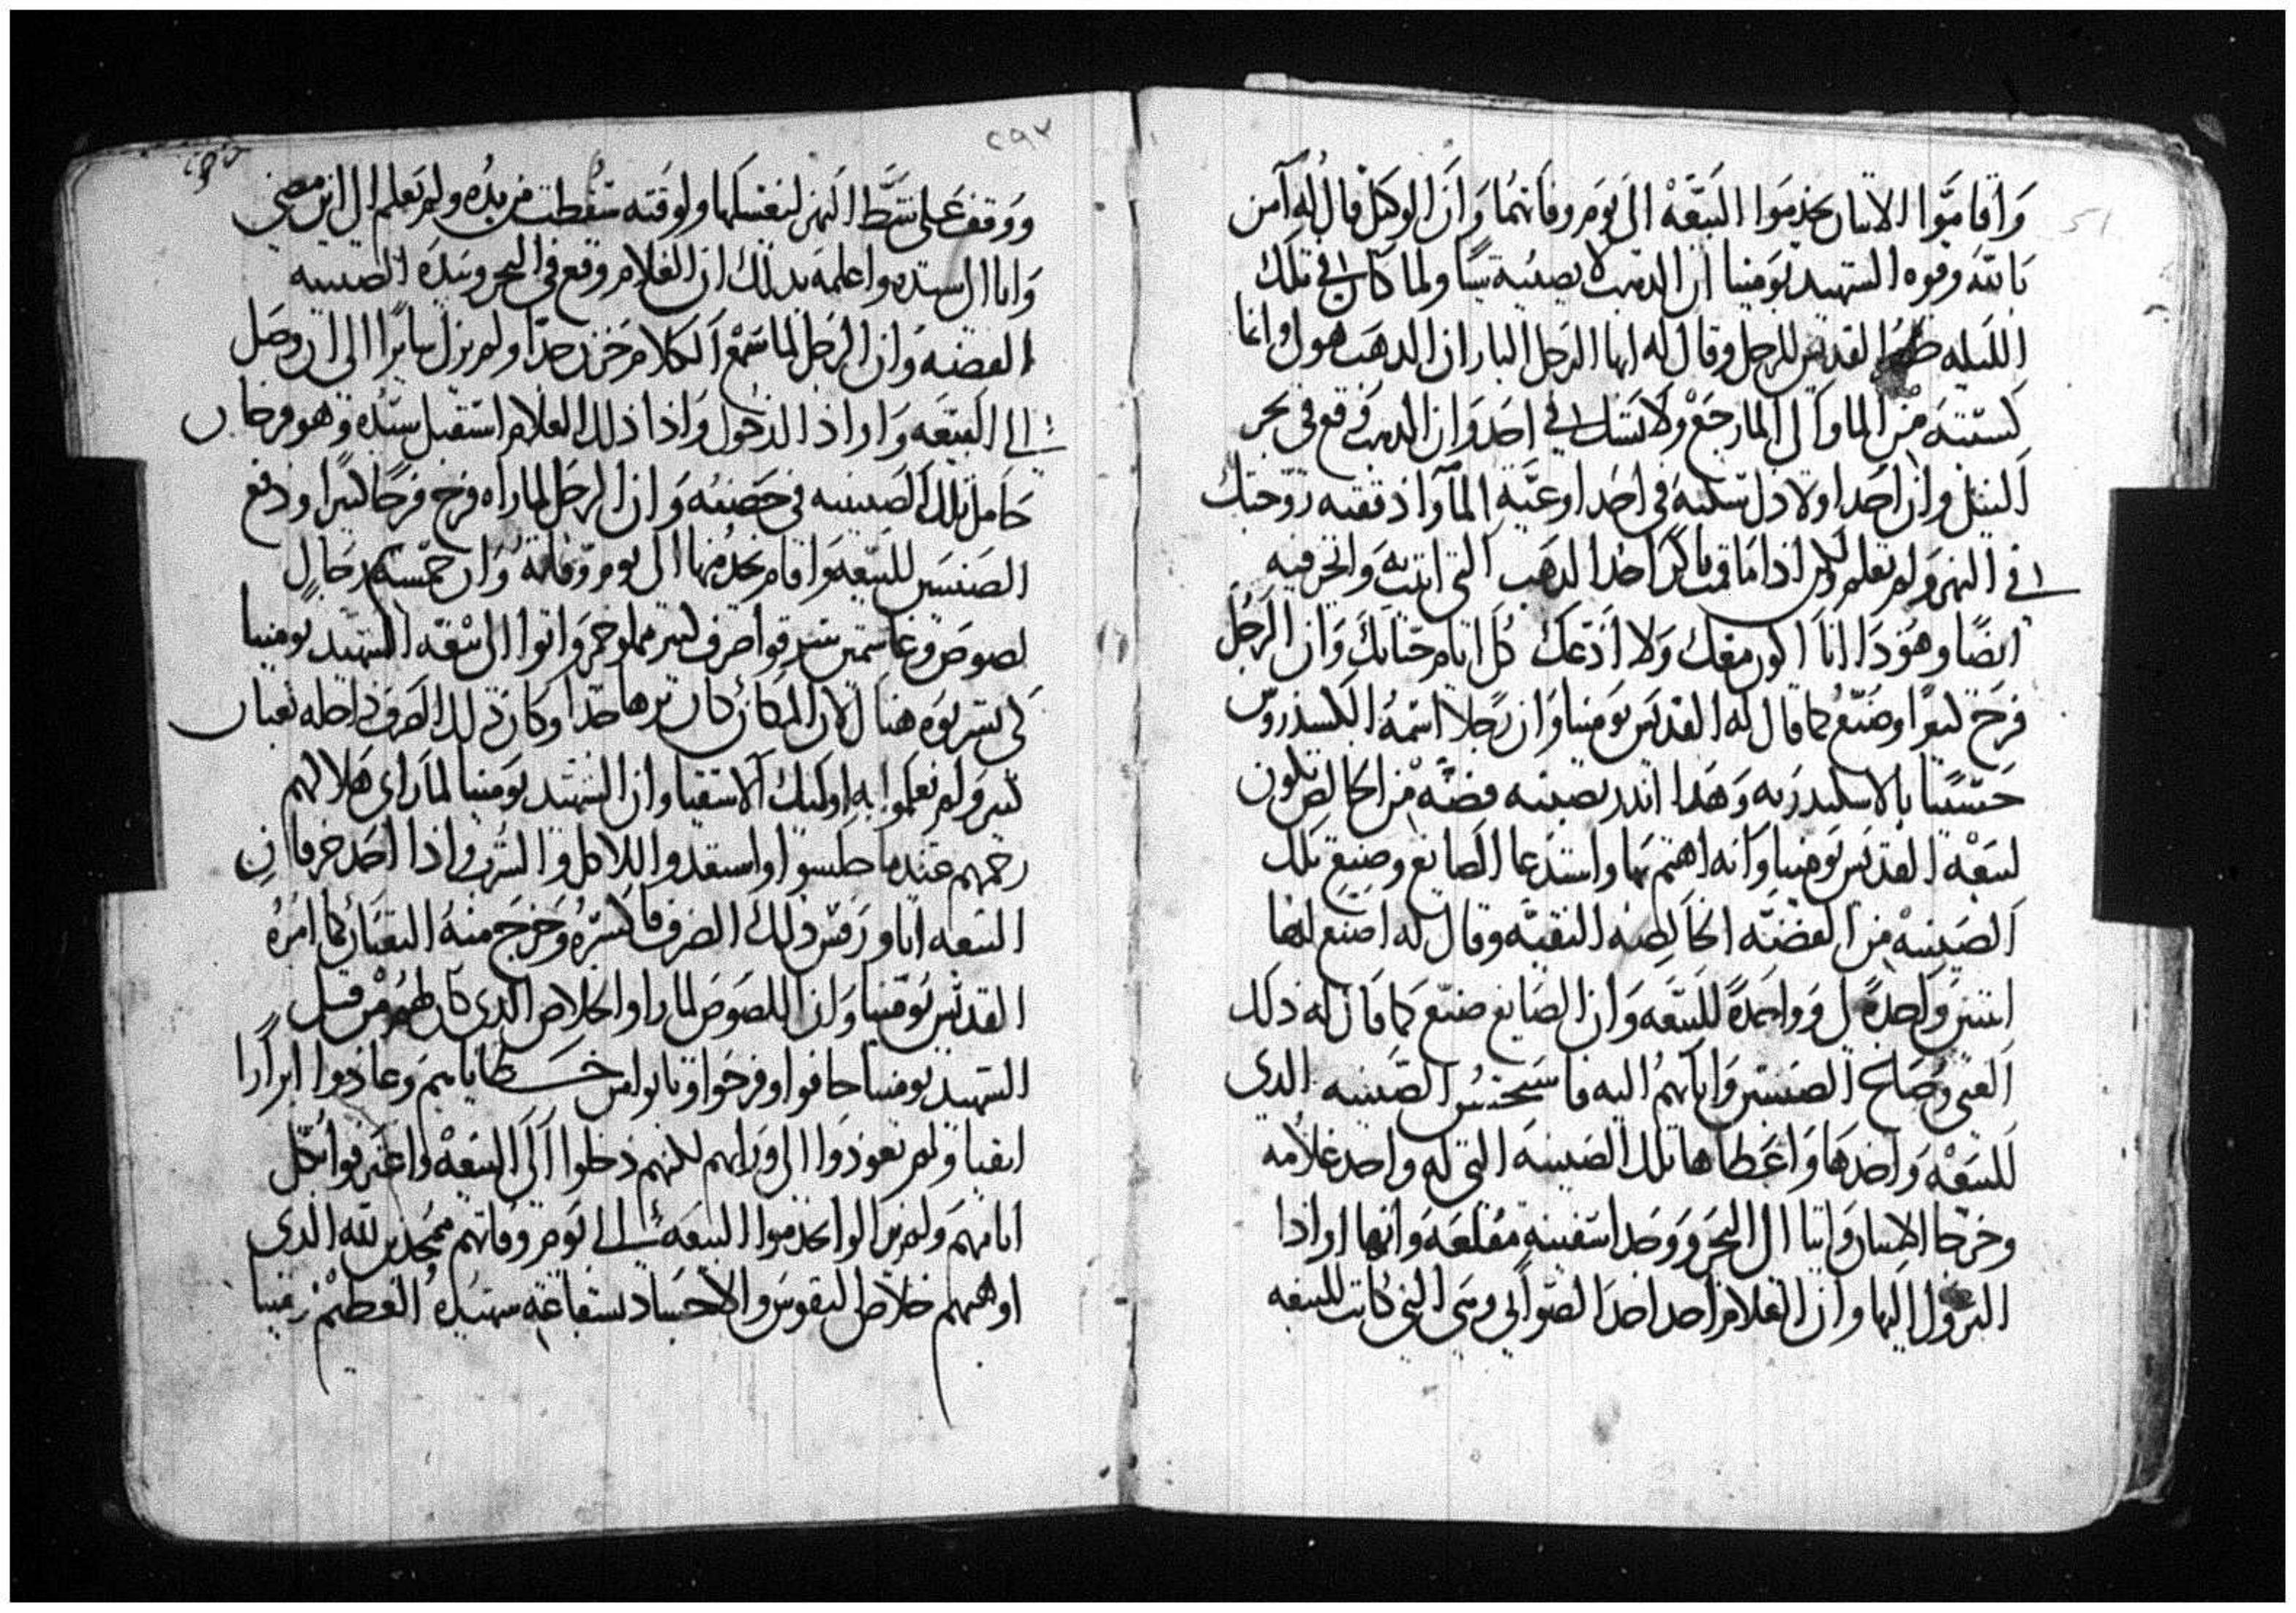 واقاموا الاتنان يخدموا البيعه الى يوم وفاتهما وان الوكيل قال له آمن
بالله وقوه الشهيد بومينا ان الدهب لا يصيبه شيا ولما كان في تلك
الليله ظهر القديس للرجل وقال له ايها الرجل البار ان الدهب هو لي وانا
كسبته من الما والى الما رجع ولا تشك في احد وان الدهب وقع في بحر
النيل وان احدا اولادك سكبه في احد اوعية الما واذ دفقته زوجتك
في النهر ولم تعلم ولكن اذا ما قمت باكر اخذ الدهب التي اتيت به واتجر فيه
ايضا وهوذا انا اكون معك ولا ادعك كل ايام حياتك وان الرجل
فرح كثيرا وصنع كما قال له القديس بومينا وان رجلا اسمه الكسندروس
حسيبا بالاسكندريه وهذا اندر بصينيه فضه من الخالص تكون
لبيعة القديس بومينا وانه اهتم بها واستدعا الصايغ وصنع تلك
الصينيه من الفضه الخالصه النقيه وقال له اصنع لنا
اتنين واحدة لي وواحدة للبيعه وان الصايغ صنع كما قال له ذلك
الغني وصلح الصنيتين واتا بهم اليه فاستحسن الصينيه الدي
للبيعة واخدها واعطاها تلك الصينيه التي له واخد غلامه
وخرجا الاتنان واتيا الى البحر ووجدا سفينة مقلعه وانهما ارادا
النزول اليها وان الغلام اخد احد الصواني وهي التي كانت للبيعه
٢٩٧
ووقف على شط النهر ليغسلها ولوقته سقطت من يده ولم يعلم الى اين مضي
واتا الى سيده واعلمه بذلك ان الغلام وقع في البحر وبيده الصينيه
الفضه وان الرجل لما سمع الكلام حزن جدا ولم يزل سايرا الى ان وصل
الى البيعه واراد الدخول واذا ذلك الغلام استقبل سيده وهو فرحان
حامل تلك الصينيه في حضنه وان الرجل لما راه فرح فرحا كبيرا ودفع
الصنيتين للبيعه واقام يخدمها الى يوم وفاته وان خمسة رجال
لصوص وغاشمين سرقوا ظرف كبير مملو خمر واتوا الى بيعة الشهيد بومينا
لكي يشربوه هناك لان المكان كان نزها جدا وكان ذلك الظرف داخله تعبان
كبير ولم يعلموا به اوليك الاشقيا وان الشهيد بومينا لما راى هلاكهم
رحمهم عندما جلسوا واستعدوا للاكل والشرب واذا احد خرفان
البيعه اتا ورفس ذلك الظرف فاكسره وخرج منه التعبان كما امره
القديس بومينا وان اللصوص لما راوا الخلاص الدي كان لهم من قبل
الشهيد بومينا خافوا وفرحوا وتابوا من خطاياهم وعادوا ابرارا
انقيا ولم يعودوا الى ورايهم لكنهم دخلوا الى البيعة واعترفوا بكل
اتامهم ولم يزالوا يخدموا البيعه الى يوم وفاتهم ممجدين لله الدي
اوهبهم خلاص النفوس والاجساد بشفاعة شهيده العظيم بومينا